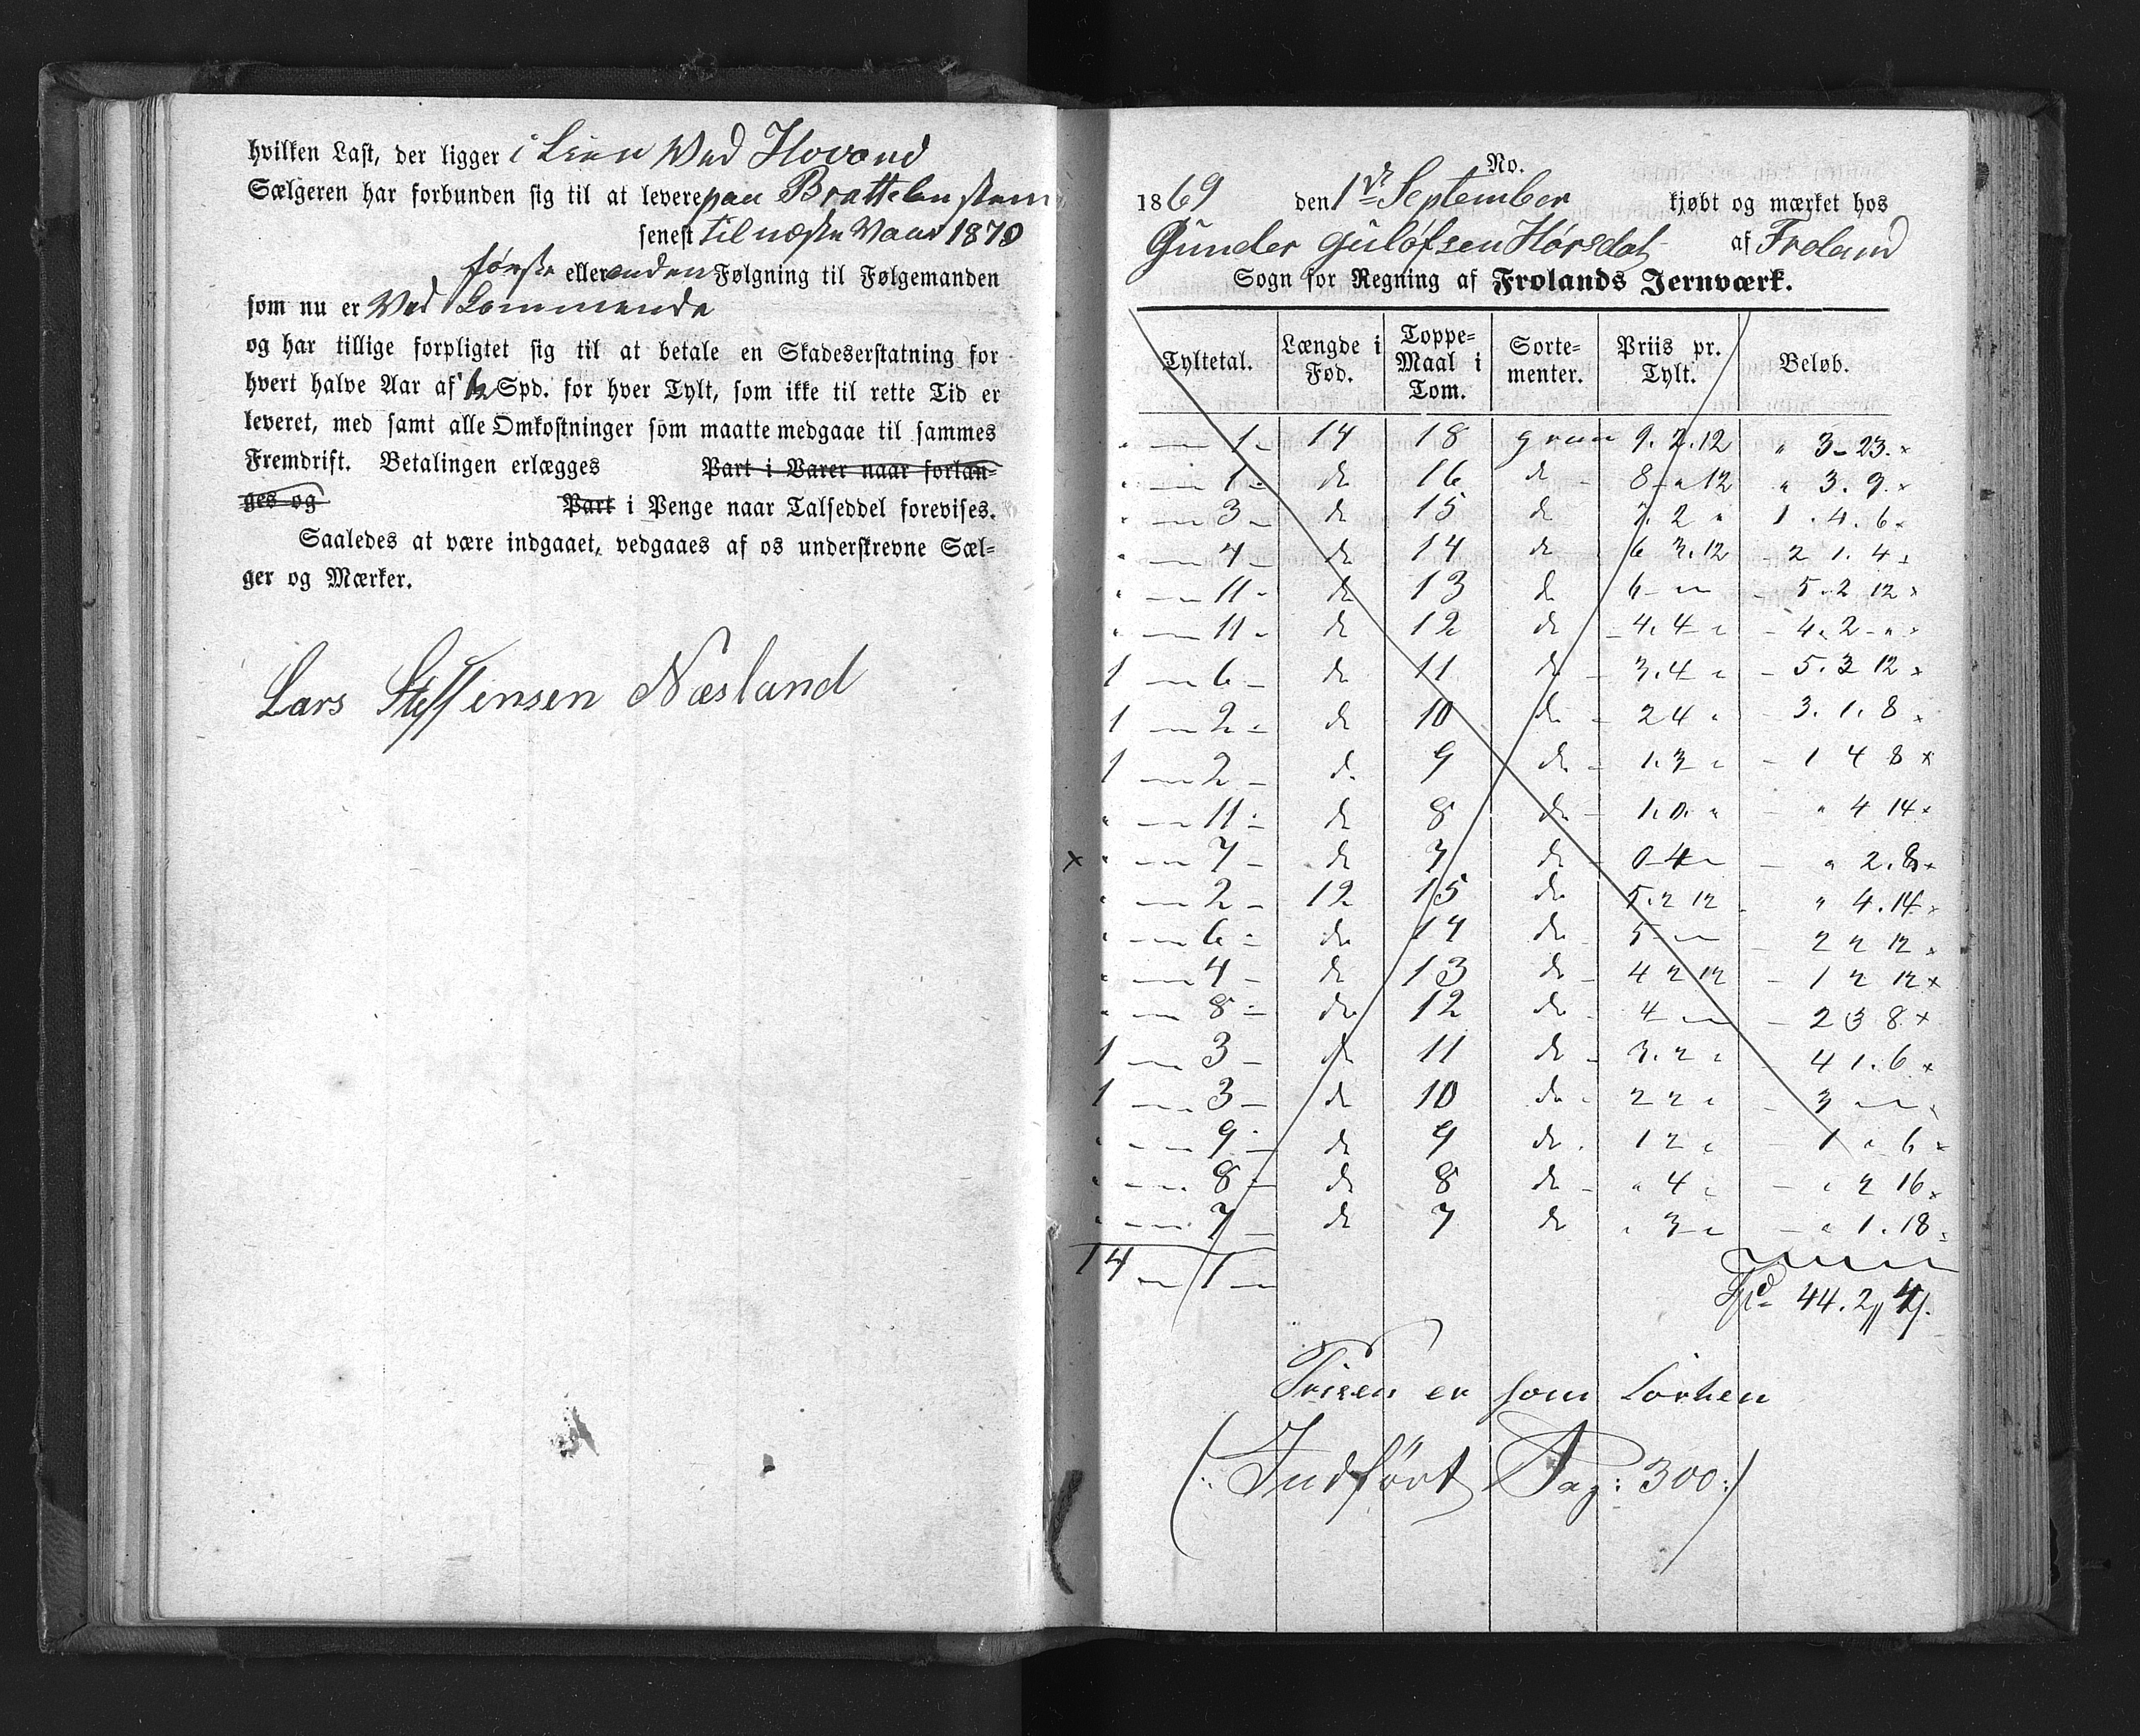 hvilken Last, der ligger i Lien Ved Hovand
Sælgeren har forbunden sig til at levere paa Brattelan
senest til næste Vaar 1870
første eller anden Følgning til Følgemanden
som nu er Ved Kommende
og har tillige forpligtet sig til at betale en Skadeserstatning for
hvert halve Aar af ½ Spd. for hver Tylt, som ikke til rette Tid er
leveret, med samt alle Omkostninger som maatte medgaae til sammes
Fremdrift. Betalingen erlægges Part i Varer naar forlan-
ges og Part i Penge naar Talseddel forevises.
Saaledes at være indgaaet, vedgaaes af os underskrevne Sæl-
ger og Mærker.
Lars Steffensen Næsland
No.
1869 den 1ste September kjøbt og mærket hos
Gunder Gulofsen Hørsdal af Froland
Sogn for Regning af Frolands Jernværk.
Tyltetal. Længde i Fod. Toppe-Maal i Tom. Sorte-menter. Priis pr. Tylt. Beløb.
" — 1 - 14 18 gran 9. 2. 12 " 3 - 23. x
" — 1 - do 16 do 8 - " 12 " 3. 9. x
" — 3 - do 15 do 7. 2 " 1. 4. 6 x
" — 4 - do 14 do 6 3. 12 2 1. 4 x
" — 11 - do 13 do 6 - " - 5. 2 12 x
" — 11 - do 12 do 4. 4 " - 4. 2 - " x
1 — 6 - do 11 do 3. 4 " - 5. 3 12 x
1 — 2 - do 10 do 2 4 " 3. 1. 8 x
1 — 2 - do 9 do 1. 3 " - 1 4 8 x
" — 11 - do 8 do 1. 0. " - " 4 14 x
x " — 7 - do 7 do 0 4 - " 2. 8 x
" — 2 - 12 15 do 5. 2 12 " 4. 14 x
" — 6 - do 14 do 5 - " 2 2 12 x
" — 4 - do 13 do 4 2 12 - 1 2 12 x
" — 8 - do 12 do 4 — - 2 3 8 x
1 — 3 - do 11 do 3. 2 " 4 1. 6 x
1 — 3 - do 10 do 2 2 " - 3 — x
" — 9 - do 9 do 1 2 " - 1 " 6 x
" — 8 - do 8 do " 4 " - " 2 16 x
" — 7 - do 7 do " 3 " - " 1. 18 x
14 — 1 —
Spd 44. 2 " 4 s.
Prisen er som Torken
(: Indført Pag: 300 :)